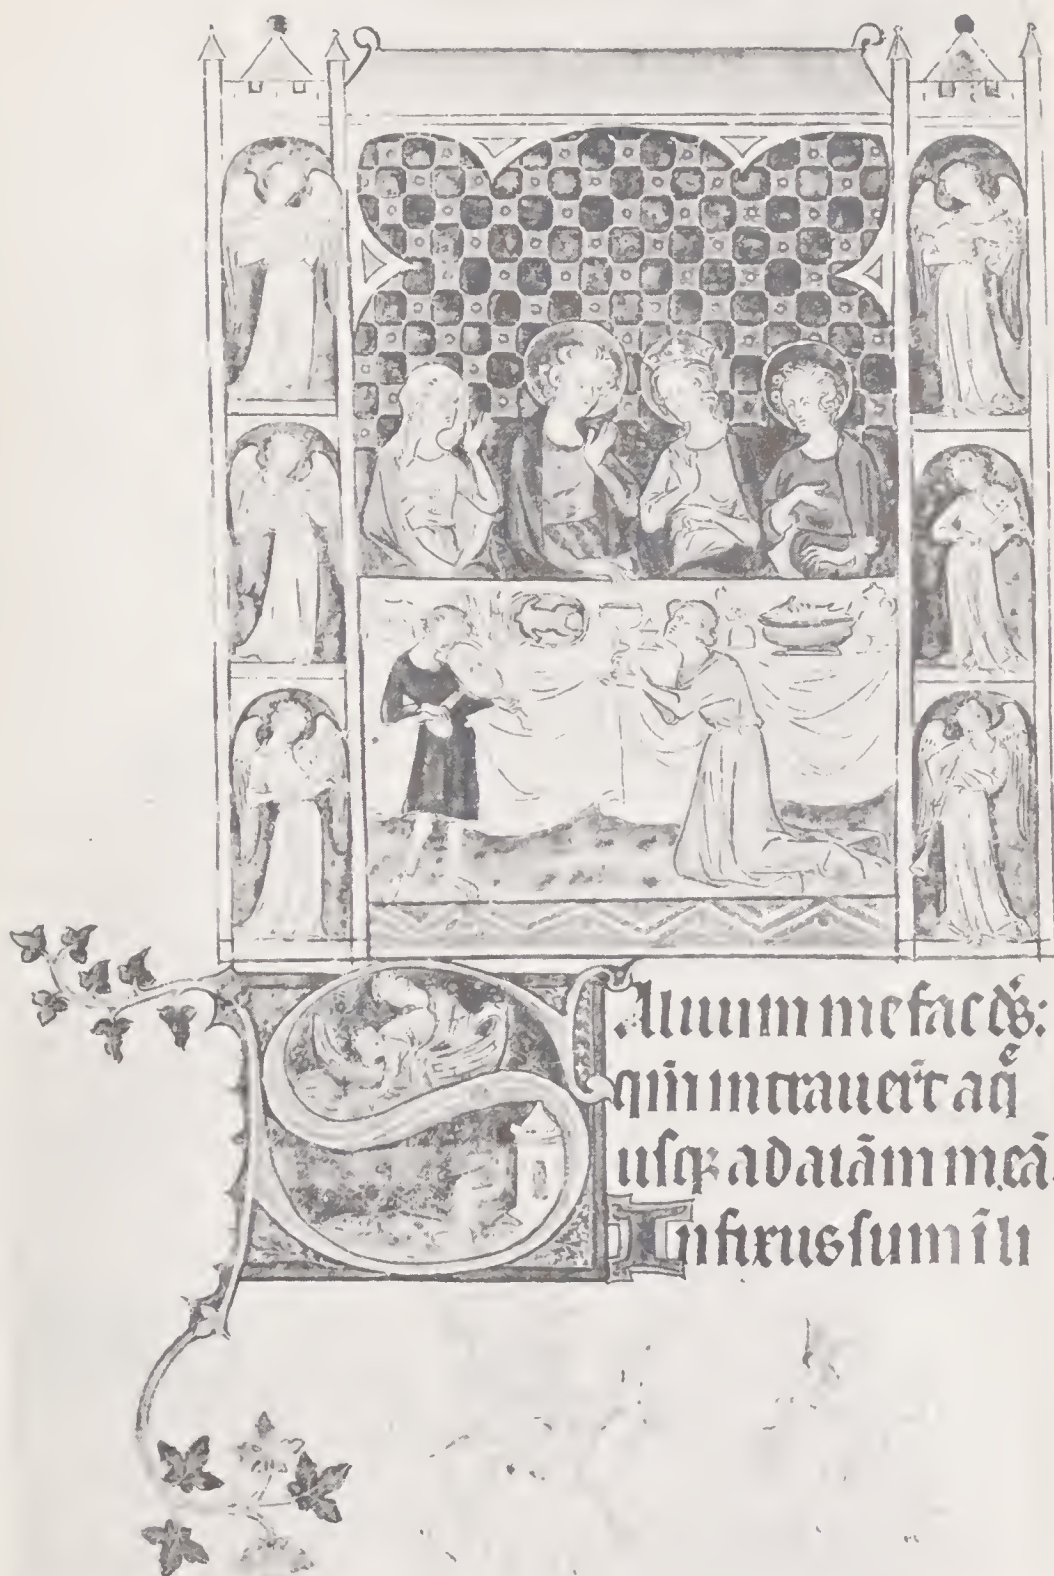 SAluum me fac ds̄:
qm̄ intrauer̄t aqͤ
usqꝫ ad aiām meā.
Infixus sum ī li